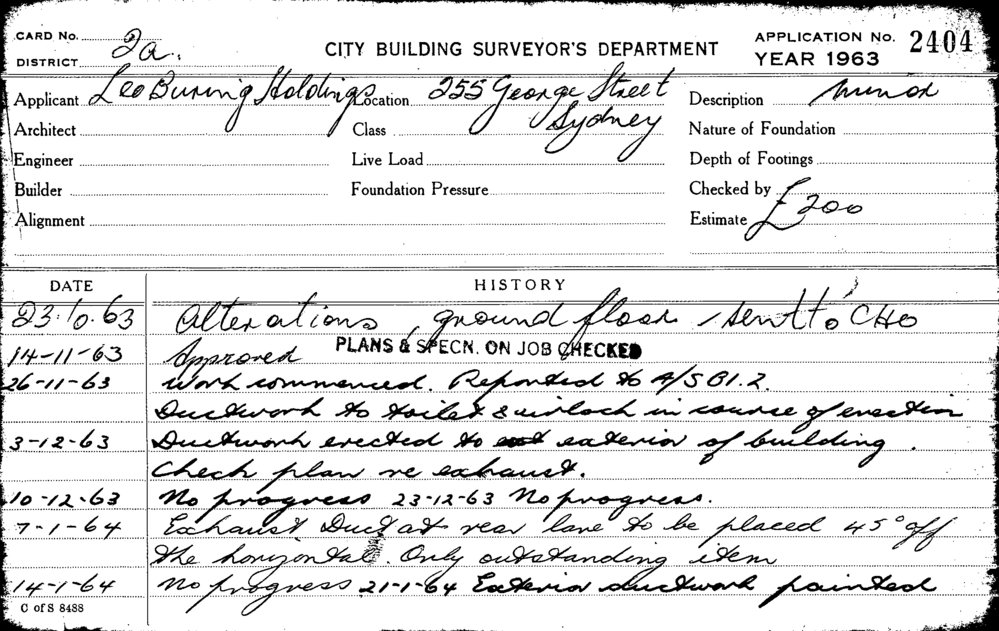 CARD No. 2a. CITY BUILDING SURVEYOR'S DEPARTMENT APPLICATION No. 2404
DISTRICT YEAR 1963
Applicant Leo Buring Holdings Location 255 George Street Description minor
Architect Class Sydney Nature of Foundation
Engineer Live Load Depth of Footings
Builder Foundation Pressure Checked by
Alignment Estimate £200
DATE HISTORY
23.10.63 Alterations, ground floor, sent to CHO
14-11-63 Approved PLANS & SPECN. ON JOB CHECKED
26-11-63 Work commenced. Reported to A/SBI.2.
Ductwork to toilet & airlock in course of erection
3-12-63 Ductwork erected to exterior of building.
Check plan re exhaust.
10-12-63 No progress 23-12-63 No progress.
7-1-64 Exhaust Duct at rear lane to be placed 45° off
the horizontal. Only outstanding item
14-1-64 No progress 21-1-64 Exterior ductwork painted
C of S 8488